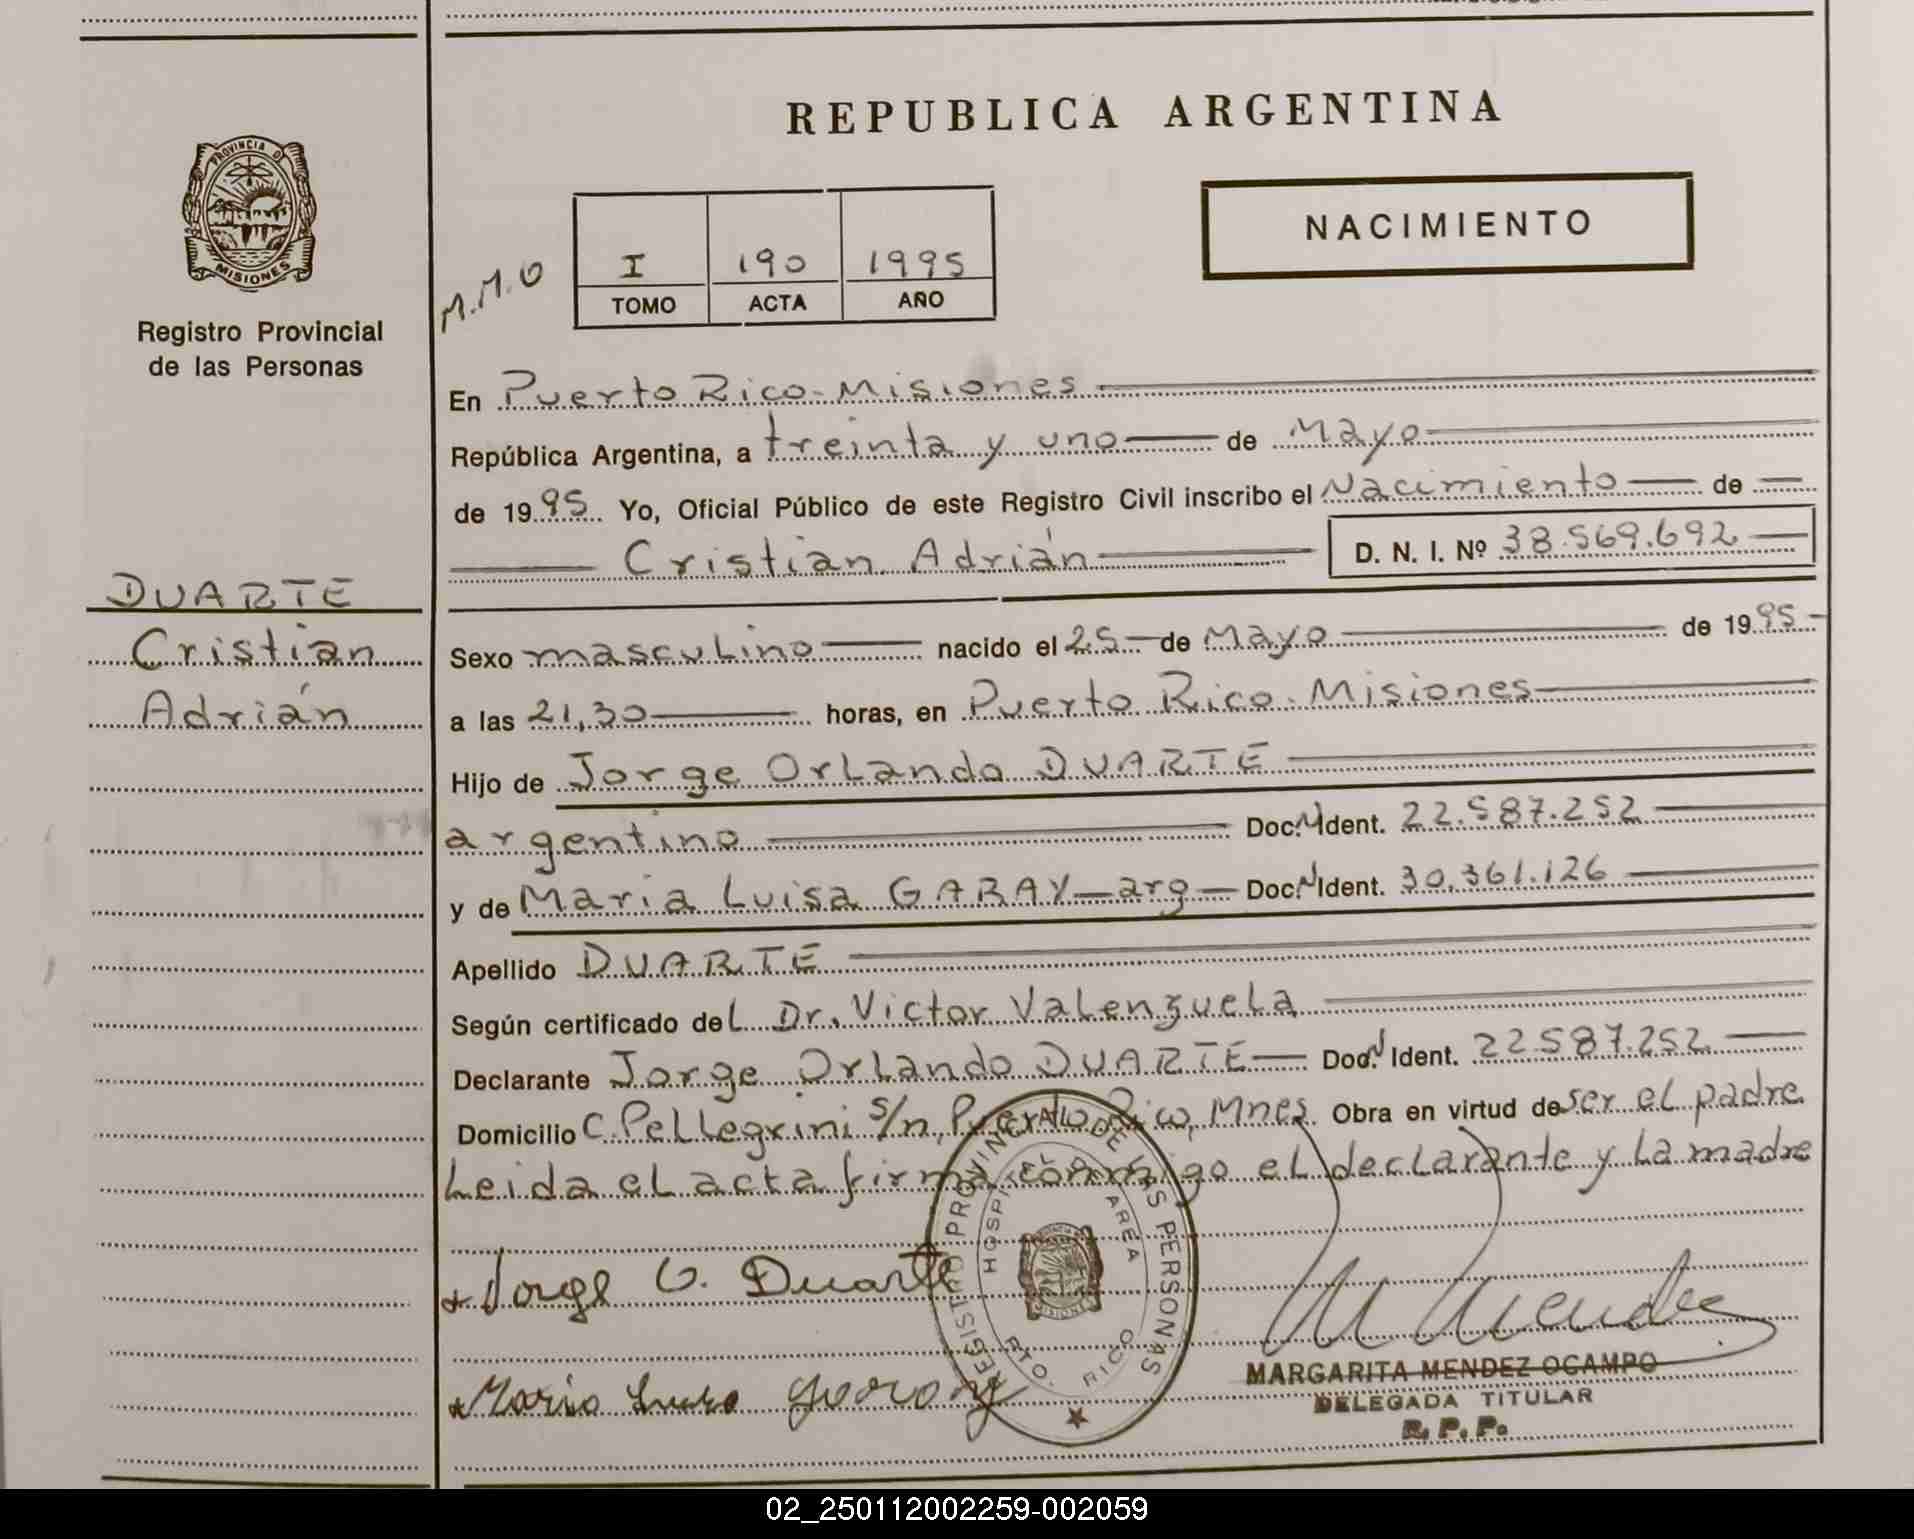 REPUBLICA ARGENTINA
PROVINCIA DE
MISIONES
Registro Provincial
de las Personas
NACIMIENTO
M.M.O
I 190 1995
TOMO ACTA AÑO
En Puerto Rico-Misiones
República Argentina, a treinta y uno de Mayo
de 1995 Yo, Oficial Público de este Registro Civil inscribo el Nacimiento de
Cristian Adrián D. N. I. Nº 38.569.692
DUARTE
Cristian
Adrián
Sexo masculino nacido el 25 de Mayo de 1995
a las 21,30 horas, en Puerto Rico-Misiones
Hijo de Jorge Orlando DUARTE
argentino Doc. N Ident. 22.587.252
y de Maria Luisa GARAY arg Doc. N Ident. 30.361.126
Apellido DUARTE
Según certificado del Dr. Victor Valenzuela
Declarante Jorge Orlando DUARTE Doc. N Ident. 22587.252
Domicilio C. Pellegrini s/n, Puerto Rico, Mnes. Obra en virtud de ser el padre
Leida el acta firma conmigo el declarante y la madre
Jorge O. Duarte
REGISTRO PROVINCIAL DE LAS PERSONAS
HOSPITAL DE AREA
MISIONES
PTO. RICO
Maria Luisa Garay
M Mendez
MARGARITA MENDEZ OCAMPO
DELEGADA TITULAR
R. P. P.
02_250112002259-002059